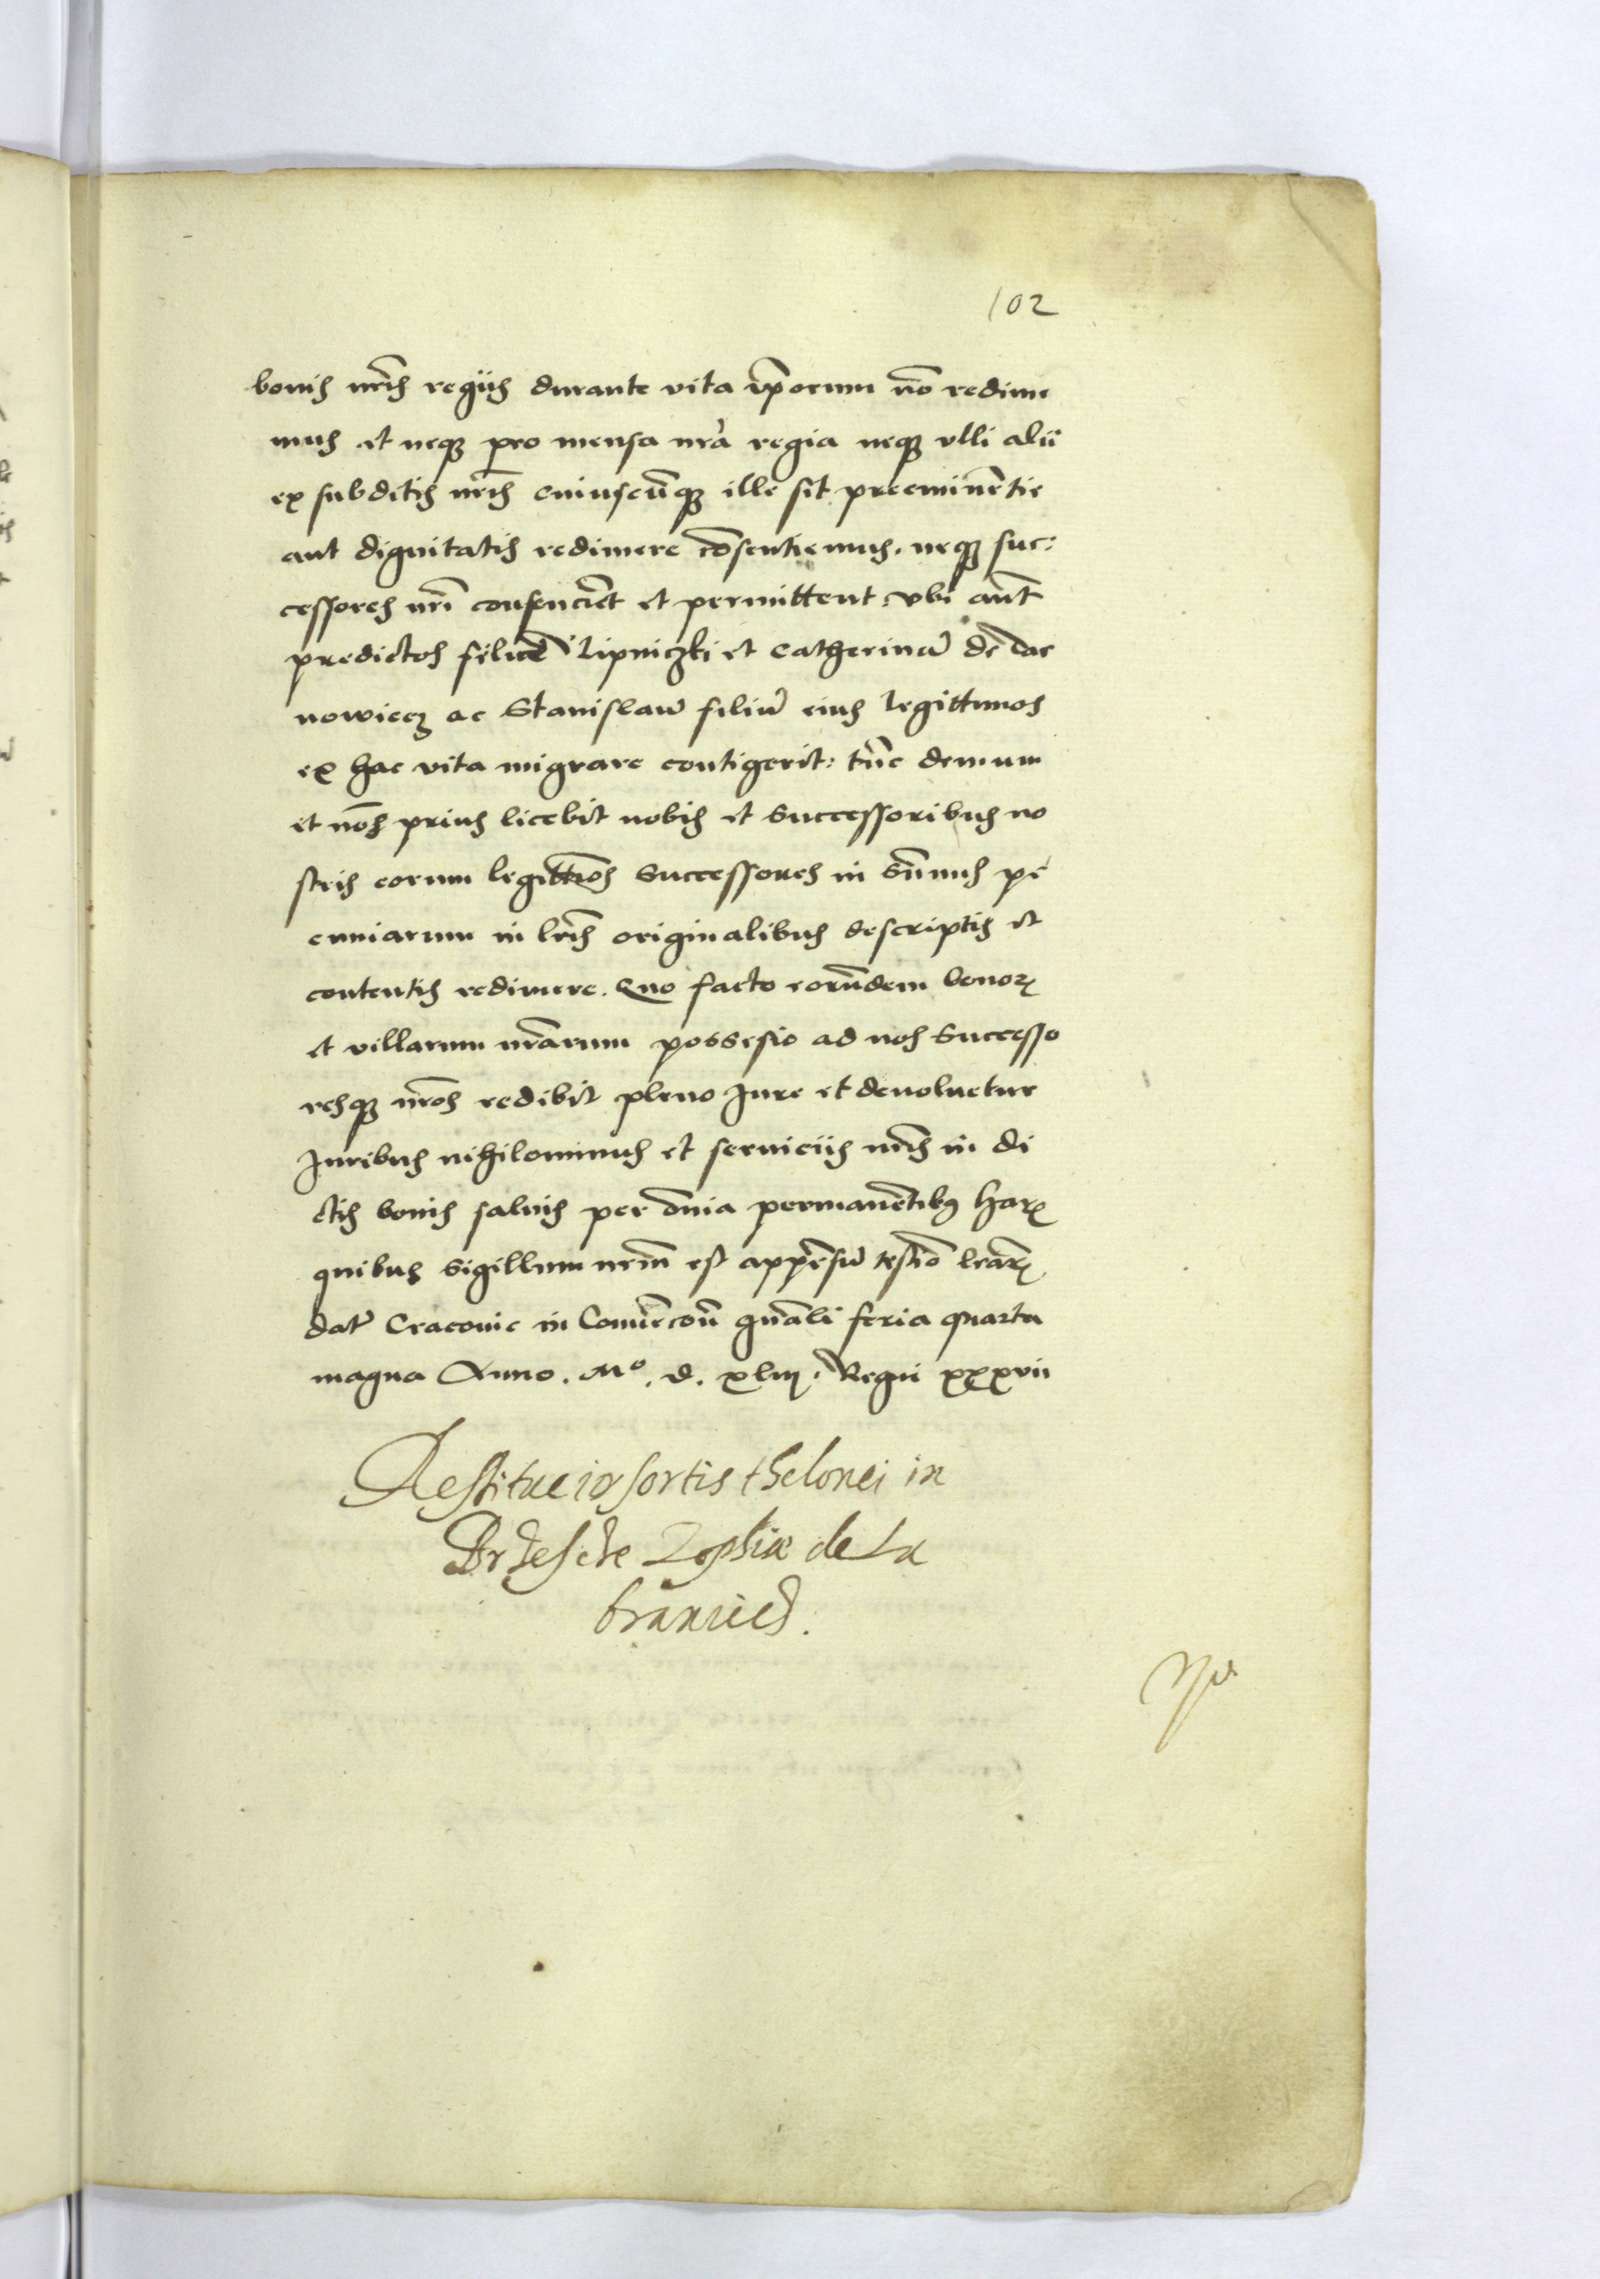 102
bonis nrīs regiis durante vita ip̄orum nō redime
mus et neqȝ pro mensa nr̄a regia neqȝ vlli alii
ex subditis nrīs cuiuscūqȝ ille sit preeminētie
aut dignitatis redimere cōsentiemus. neqȝ suc:
cessores nrī consenciēt et permittent: vbi aūt
predictos Lipniczki et Catherinā de Dar
nowiecz ac Stanislaū filiū eius legittimos
ex hac vita migrare contigerit: tūc demum
et nō prius licebit nobis et Successoribus no
stris eorum legittīos Successores in sūmis pe
cuniarum in lrīs originalibus descriptis et
contentis redimere. Quo facto eorūdem bonorꝝ
et villarum nr̄arum possesio ad nos Successo
resqȝ nrōs redibit pleno Jure et deuoluetur
Juribus nihilominus et seruiciis nrīs in di
ctis bonis saluis per om̄ia permanētibꝰ harꝝ
quibus Sigillum nrm̄ est appēsū testīo lrārꝝ
datū Cracouie in Conuencōn gn̄ali feria quarta
magna Anno. Mº. d. xliij. Regni xxxvii
Restitucio sortis thelonei in
Brzescze Zophiæ de La
branied.